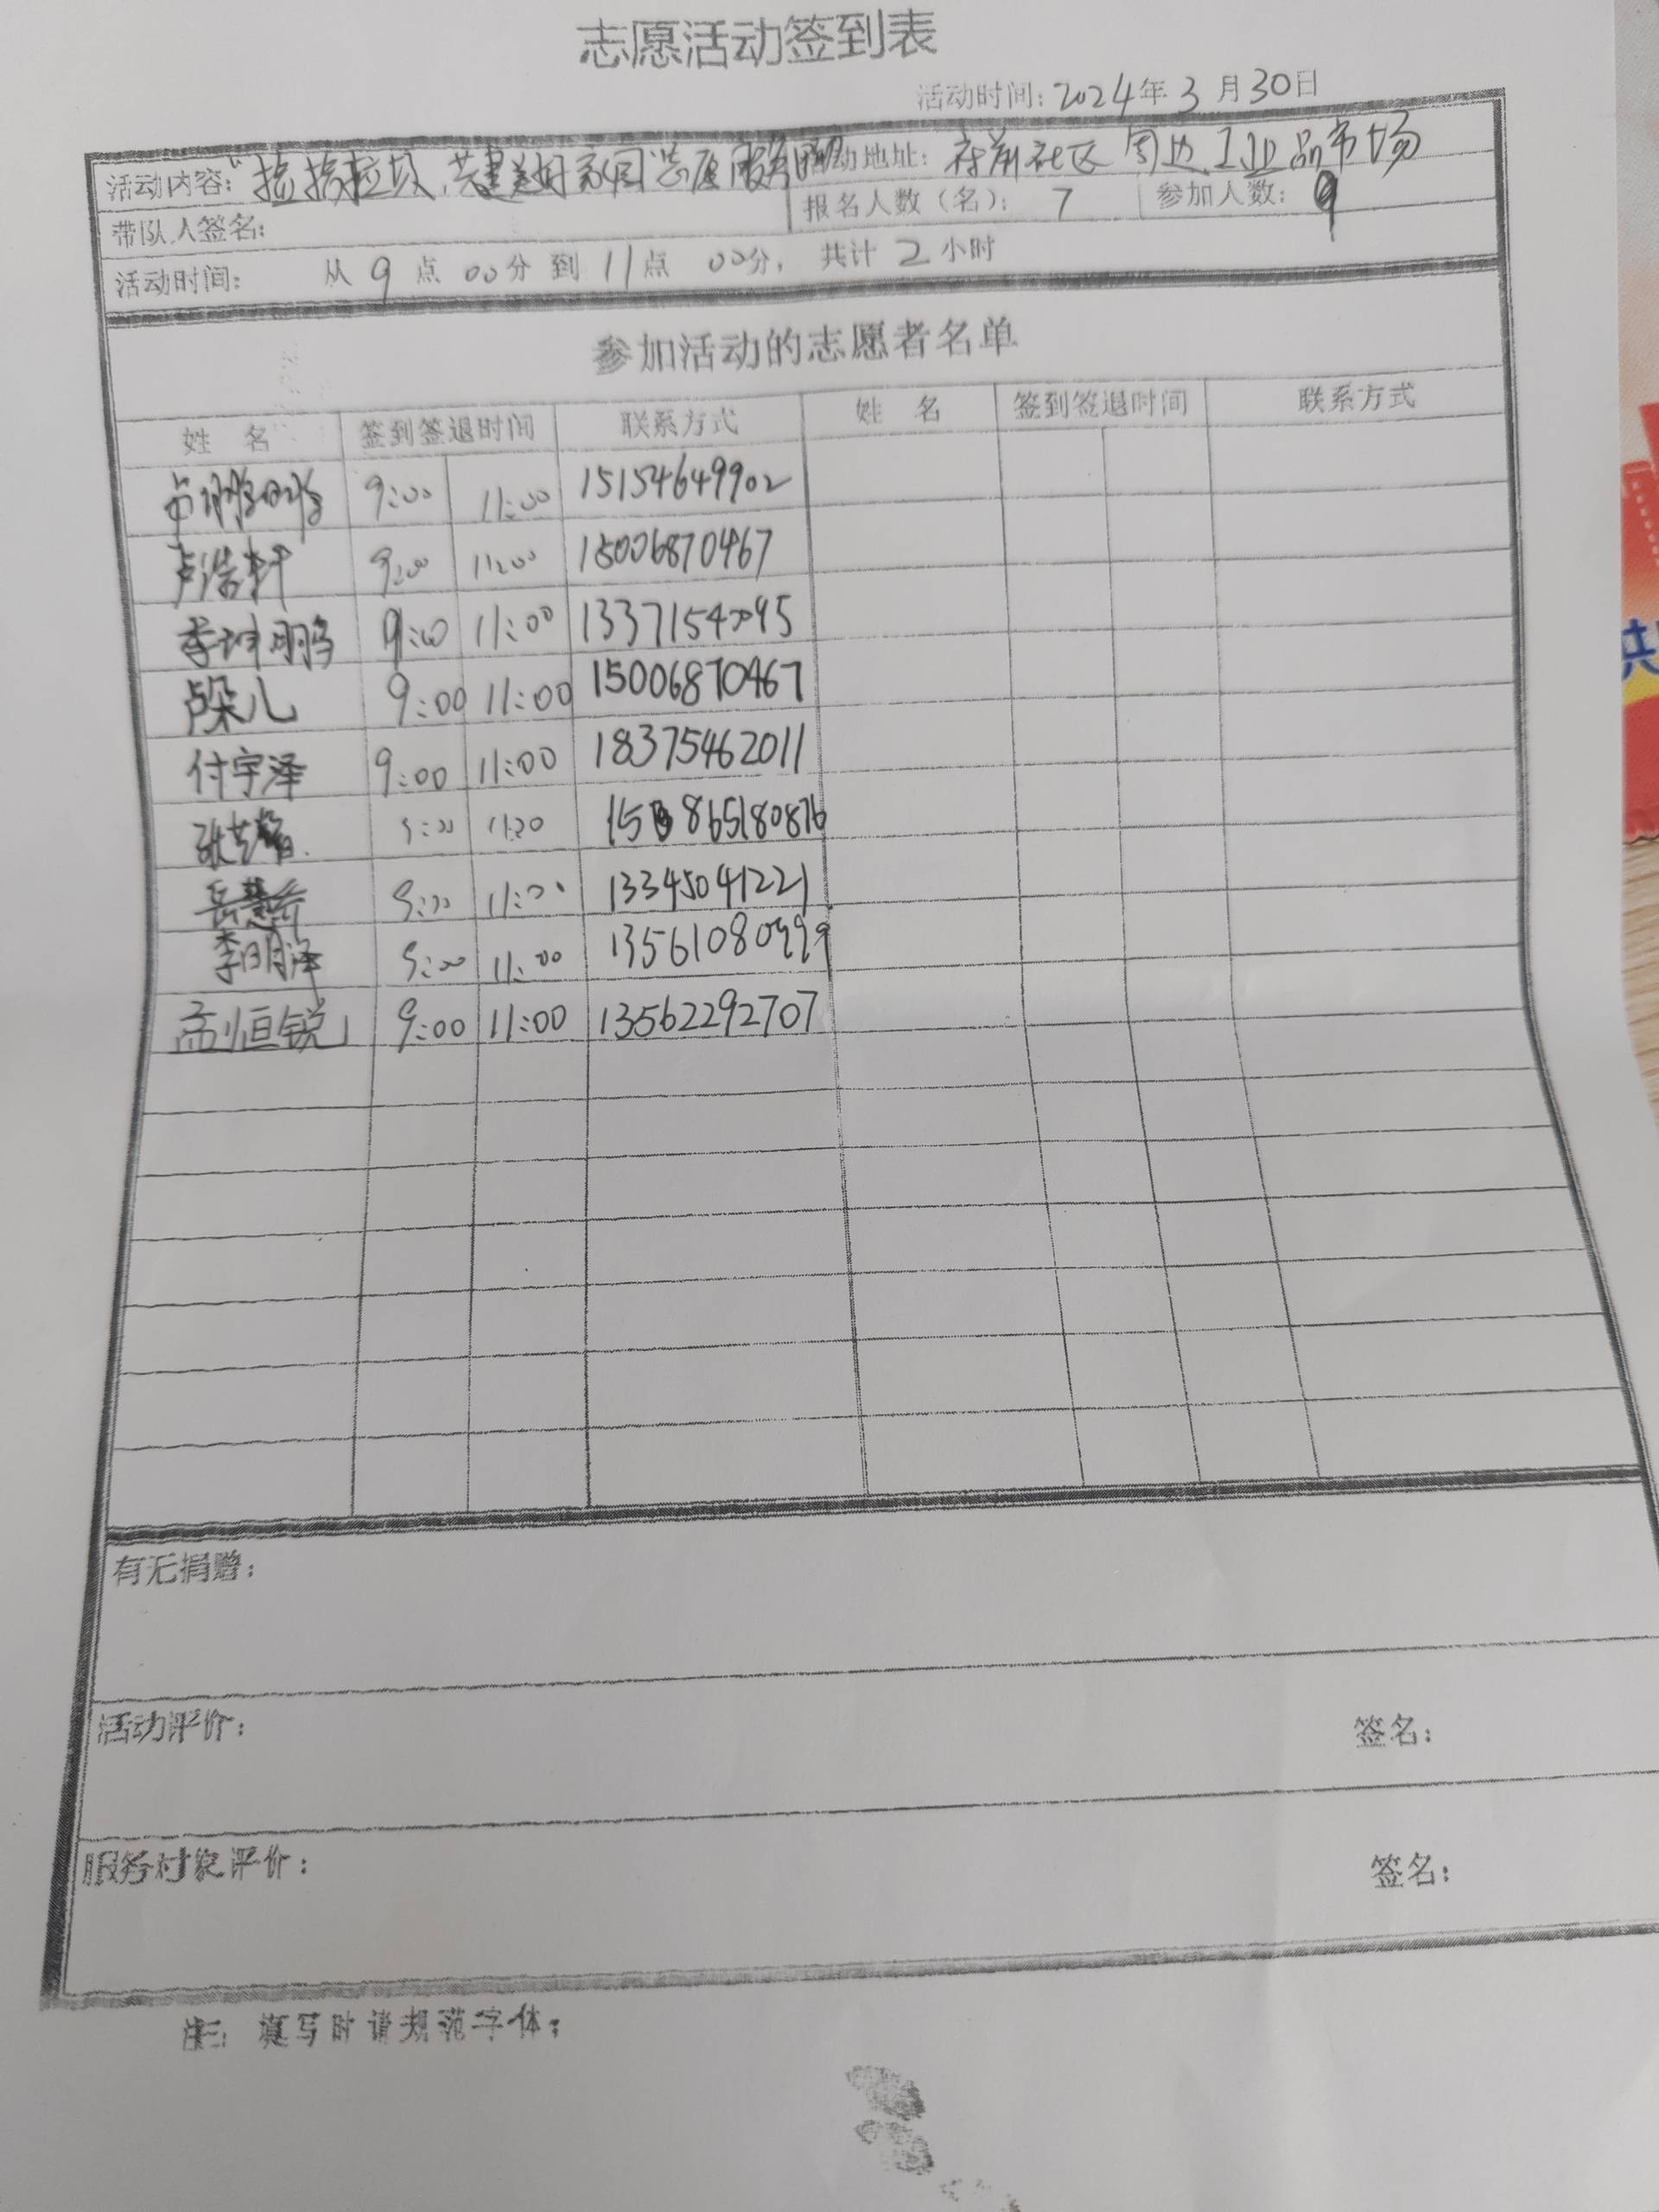 志愿活动签到表
活动时间：2024年3月30日
活动内容："捡捡垃圾，共建美好家园"志愿服务 活动地址：社区周边工业品市场
带队人签名： 报名人数（名）：7 参加人数：9
活动时间： 从9点00分到11点00分，共计2小时
参加活动的志愿者名单
姓 名 签到签退时间 联系方式 姓 名 签到签退时间 联系方式
9:00 11:00 15154649902
卢浩轩 9:00 11:00 15006870467
李坤鹏 9:00 11:00
卢朵儿 9:00 11:00 15006870467
付宇泽 9:00 11:00 18375462011
9:00 11:00
岳慧 9:00 11:00 13345041221
李明泽 9:00 11:00
孟恒锐 9:00 11:00 13562292707
有无捐赠：
活动评价： 签名：
服务对象评价： 签名：
注：填写时请规范字体；
共